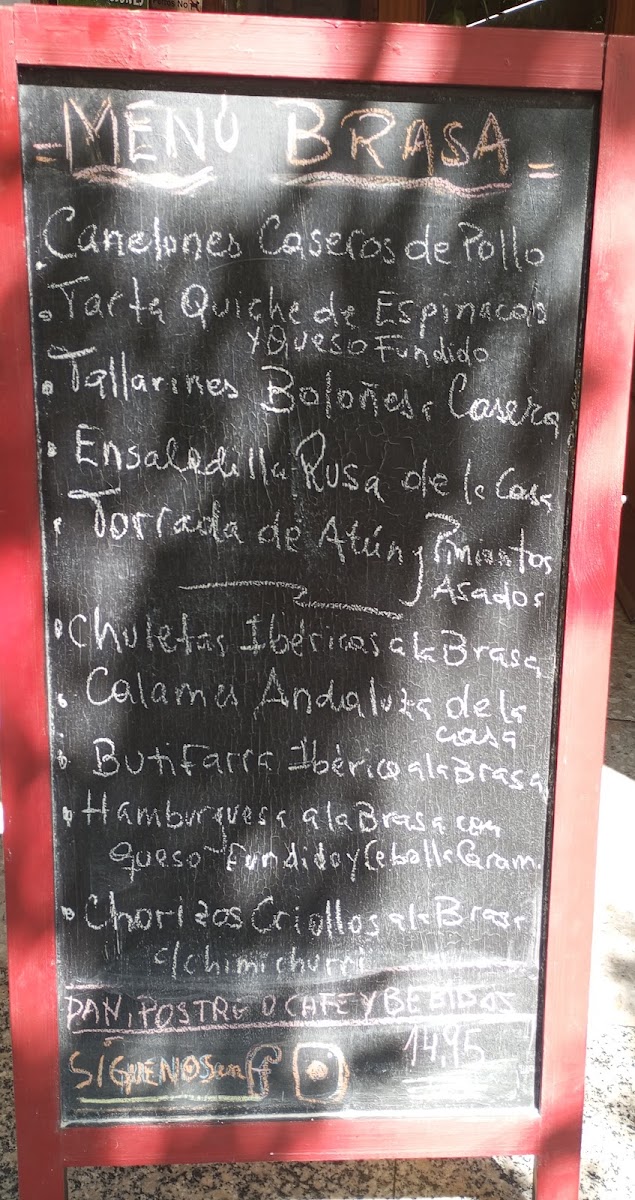 = MENÚ BRASA =
Canelones Caseros de Pollo
Tarta Quiche de Espinacas
y Queso Fundido
Tallarines Boloñesa Casera
Ensaladilla Rusa de la Casa
Torrada de Atún y Pimientos
Asados
Chuletas Ibéricas a la Brasa
Calamares Andaluza de la
casa
Butifarra Ibérico a la Brasa
Hamburguesa a la Brasa con
queso Fundido y Cebolla Caram.
Chorizos Criollos a la Brasa
c/chimichurri
PAN, POSTRE O CAFE Y BEBIDAS
14,95
SÍGUENOS en f